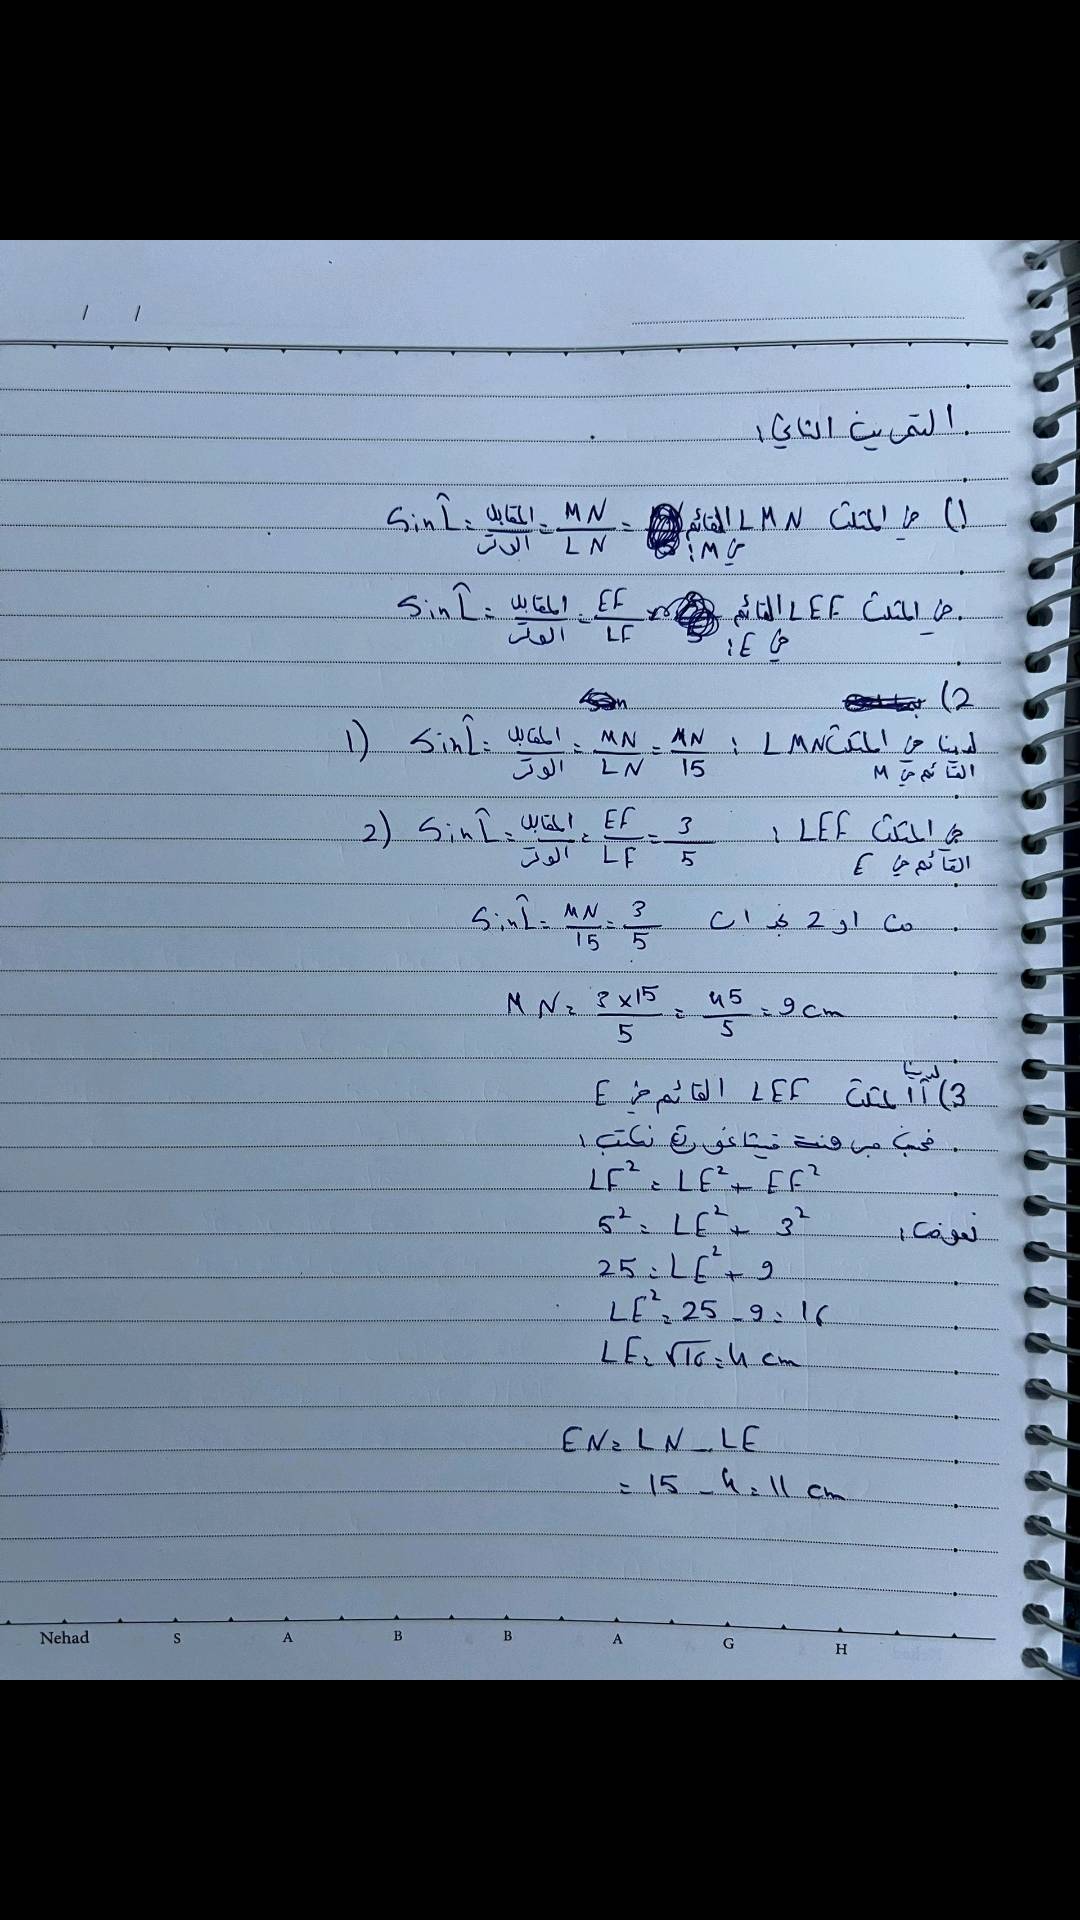 / /
التمرين الثاني:
1) في المثلث LMN القائم في M: Sin L̂ = المقابل/الوتر = MN/LN =
في المثلث LEF القائم في E: Sin L̂ = المقابل/الوتر = EF/LF
2)
لدينا في المثلث LMN القائم في M : 1) Sin L̂ = المقابل/الوتر = MN/LN = MN/15
في المثلث LEF القائم في E : 2) Sin L̂ = المقابل/الوتر = EF/LF = 3/5
من 1 و 2 نجد ان Sin L̂ = MN/15 = 3/5
MN = 3×15/5 = 45/5 = 9 cm
3) لدينا المثلث LEF القائم في E
فحسب مبرهنة فيتاغورث نكتب:
LF² = LE² + EF²
نعوض: 5² = LE² + 3²
25 = LE² + 9
LE² = 25 - 9 = 16
LE = √16 = 4 cm
EN = LN - LE
= 15 - 4 = 11 cm
Nehad S A B B A G H